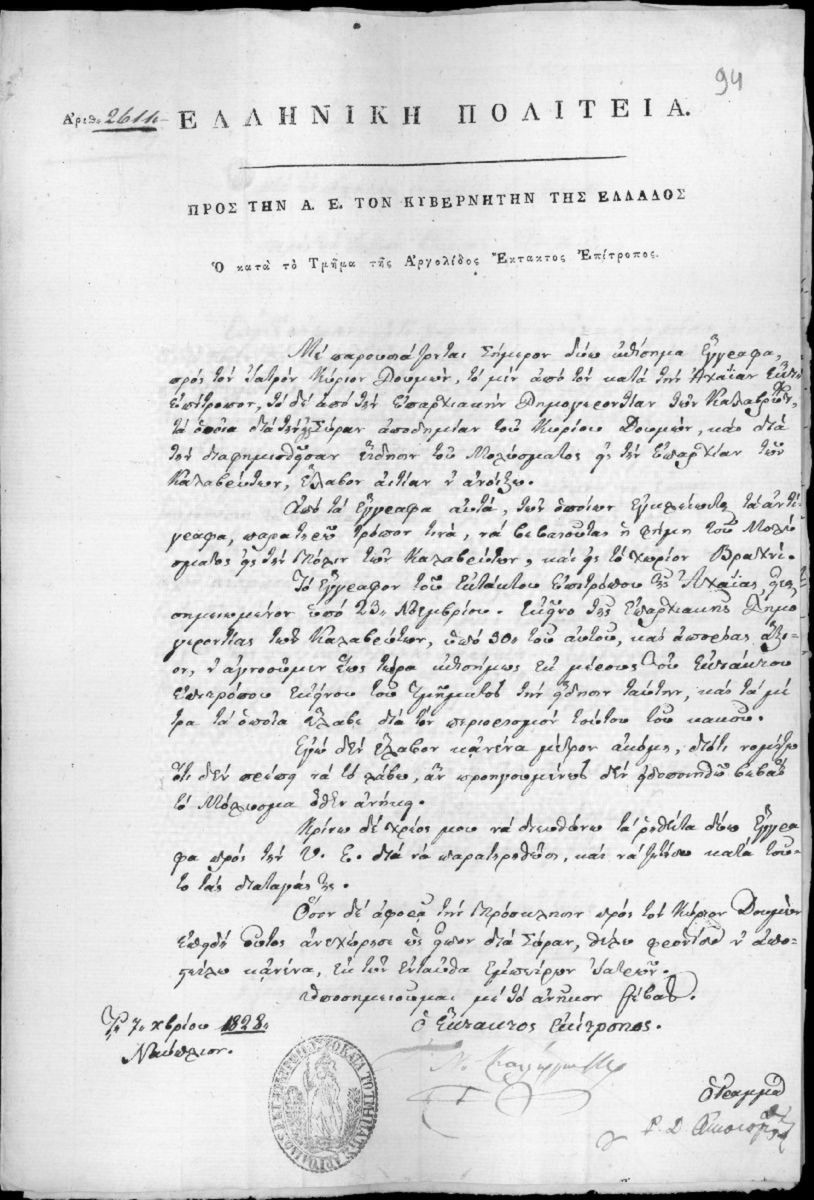 94
Ἀριθ. 2611.
ΕΛΛΗΝΙΚΗ ΠΟΛΙΤΕΙΑ.
ΠΡΟΣ ΤΗΝ Α. Ε. ΤΟΝ ΚΥΒΕΡΝΗΤΗΝ ΤΗΣ ΕΛΛΑΔΟΣ
Ὁ κατὰ τὸ Τμῆμα τῆς Ἀργολίδος Ἔκτακτος Ἐπίτροπος.
Μὲ παρουσιάζονται σήμερον δύω ἐπίσημα ἔγγραφα,
πρὸς τὸν ἰατρὸν Κύριον Δουμὸν, τὸ μὲν ἀπὸ τὸν κατὰ τὴν Ἀχαΐαν Ἔκτα
Ἐπίτροπον, τὸ δὲ ἀπὸ τὴν Ἐπαρχιακὴν Δημογεροντίαν τῶν Καλαβρύτων,
τὰ ὁποῖα διὰ τὴν Σύραν ἀποδημίαν τοῦ Κυρίου Δουμὸν, καὶ διὰ
τὴν διαφημισθεῖσαν εἴδησιν τοῦ Μολύσματος εἰς τὴν ἐπαρχίαν τῶν
Καλαβρύτων, ἔλαβον αἰτίαν ν' ἀνοίξω.
Ἀπὸ τὰ ἔγγραφα αὐτὰ, τῶν ὁποίων ἐγκλείω τὰ ἀντί
γραφα, παρατηρῶ τρόπον τινὰ, νὰ βεβαιοῦται ἡ φήμη τοῦ Μολύ
σματος εἰς τὴν πόλιν τῶν Καλαβρύτων, καὶ εἰς τὸ χωρίον Βραχνί.
Τὸ ἔγγραφον τοῦ Ἐκτάκτου Ἐπιτρόπου τῆς Ἀχαΐας εἶναι
σημειωμένον ὑπὸ 23 Νοεμβρίου. Ἐκεῖνο τῆς Ἐπαρχιακῆς Δημο
γεροντίας τῶν Καλαβρύτων, ὑπὸ 30 τοῦ αὐτοῦ, καὶ ἀπορίας ἄξι
ον, ν' ἀγνοοῦμεν ἕως τώρα ἐπισήμως ἐκ μέρους τοῦ Ἐκτάκτου
Ἐπιτρόπου ἐκείνου τοῦ Τμήματος τὴν εἴδησιν ταύτην, καὶ τὰ μέ
τρα τὰ ὁποῖα ἔλαβε διὰ τὸν περιορισμὸν τούτου τοῦ κακοῦ.
Ἐγὼ δὲν ἔλαβον κᾀνένα μέτρον ἀκόμη, διότι νομίζω
ὅτι δὲν πρέπει νὰ τὸ λάβω, ἂν προηγουμένως δὲν εἰδοποιηθῶ
τὸ Μόλυσμα ὅθεν ἀνήκει.
Κρίνω δὲ χρέος μου νὰ διευθύνω τὰ ῥηθέντα δύω ἔγγρα
φα πρὸς τὴν Υ. Ε. διὰ νὰ παρατηρηθῶσι, καὶ νὰ ζητήσω κατὰ τοῦ
το τὰς διαταγάς της.
Ὅσον δὲ ἀφορᾷ τὴν πρόσκλησιν πρὸς τὸν Κύριον Δουμὸν
ἐπειδὴ οὗτος ἀνεχώρησε ὡς εἶπον διὰ Σύραν, θέλω φροντίσει ν' ἀπο
στείλω κᾀνένα, ἐκ τῶν ἐνταῦθα ἐμπείρων ἰατρῶν.
Ὑποσημειοῦμαι μὲ τὸ ἀνῆκον σέβας.
Τῇ 7 Χβρίου 1828
Ναύπλιον.
ὁ Ἔκτακτος Ἐπίτροπος.
Ν. Καλλέργης
ὁ Γραμμα